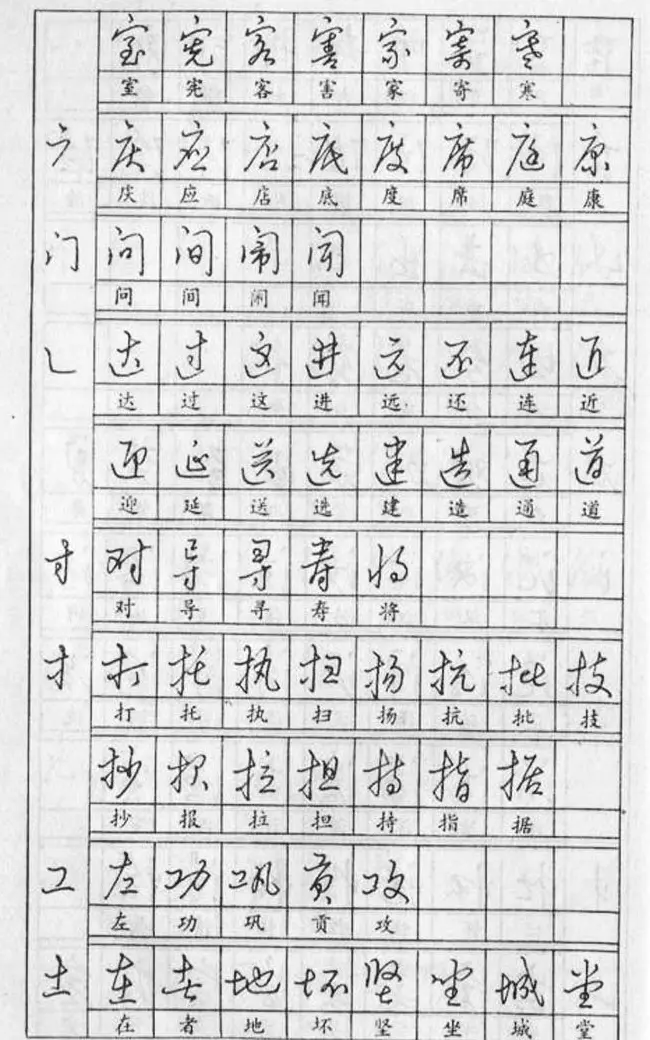 室 宪 客 害 家 寄 寒
室 宪 客 害 家 寄 寒
广 庆 应 店 底 度 席 庭 康
庆 应 店 底 度 席 庭 康
门 问 间 闹 闻
问 间 闹 闻
辶 达 过 这 进 远 还 连 近
达 过 这 进 远 还 连 近
迎 延 送 选 建 造 通 道
迎 延 送 选 建 造 通 道
寸 对 导 寻 寿 将
对 导 寻 寿 将
扌 打 托 执 扫 扬 抗 批 技
打 托 执 扫 扬 抗 批 技
抄 报 拉 担 持 指 据
抄 报 拉 担 持 指 据
工 左 功 巩 贡 攻
左 功 巩 贡 攻
土 在 者 地 坏 坚 坐 城 堂
在 者 地 坏 坚 坐 城 堂